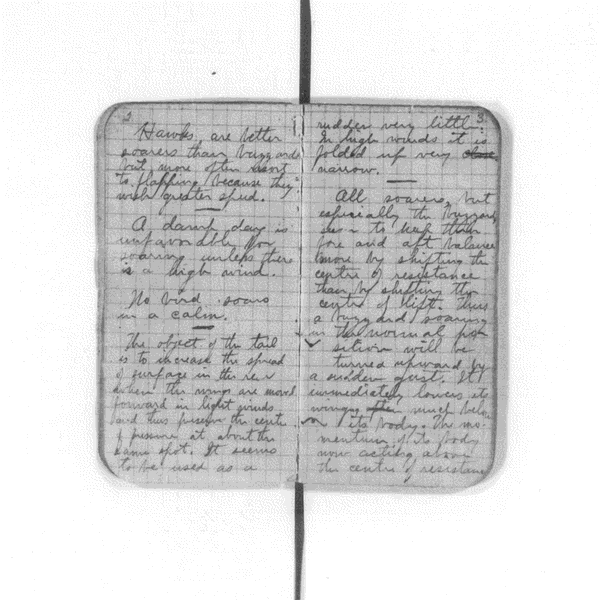 2
Hawks are better
soarers than buzzards
but more often resort
to flapping because they
wish greater speed.
A damp day is
unfavorable for
soaring unless there
is a high wind.
No bird soars
in a calm.
The object of the tail
is to increase the spread
of surface in the rear
when the wings are moved
forward in light winds
and thus preserve the centre
of pressure at about the
same spot. It seems
to be used as a
3
rudder very little.
In high winds it is
folded up very
narrow.
All soarers, but
especially the buzzard,
seem to keep their
fore and aft balance
more by shifting the
centre of resistance
than by shifting the
centre of lift. Thus
a buzzard soaring
in the normal po-
sition will be
turned upward by
a sudden gust. It
immediately lowers its
wings much below
its body. The mo-
mentum of its body
now acting above
the centre of resistance